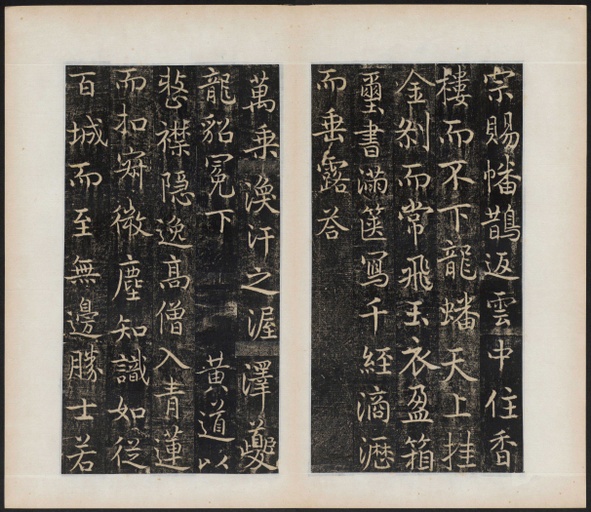 宗賜幡鵲返雲中住香
樓而不下龍蟠天上挂
金刹而常飛玉衣盈箱
璽書滿篋寫千經滴瀝
而垂露荅
萬乘渙汗之渥澤夔
龍貂冕下 黃道以
整襟隐逸高僧入青蓮
而扣寂微塵知識如從
百城而至無邊勝士若